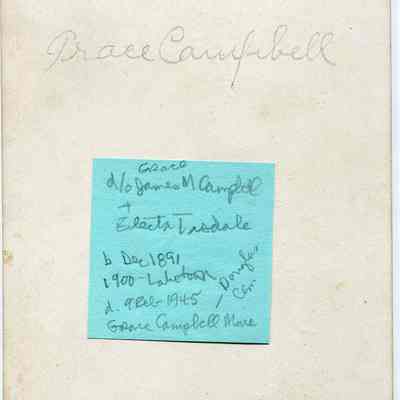 Grace Campbell
Grace
d/o James M Campbell
+
Electa Tasdale
b Dec 1891
1900 - Laketown
d. 9 Feb 1945 / Douglas Cem
Grace Campbell More